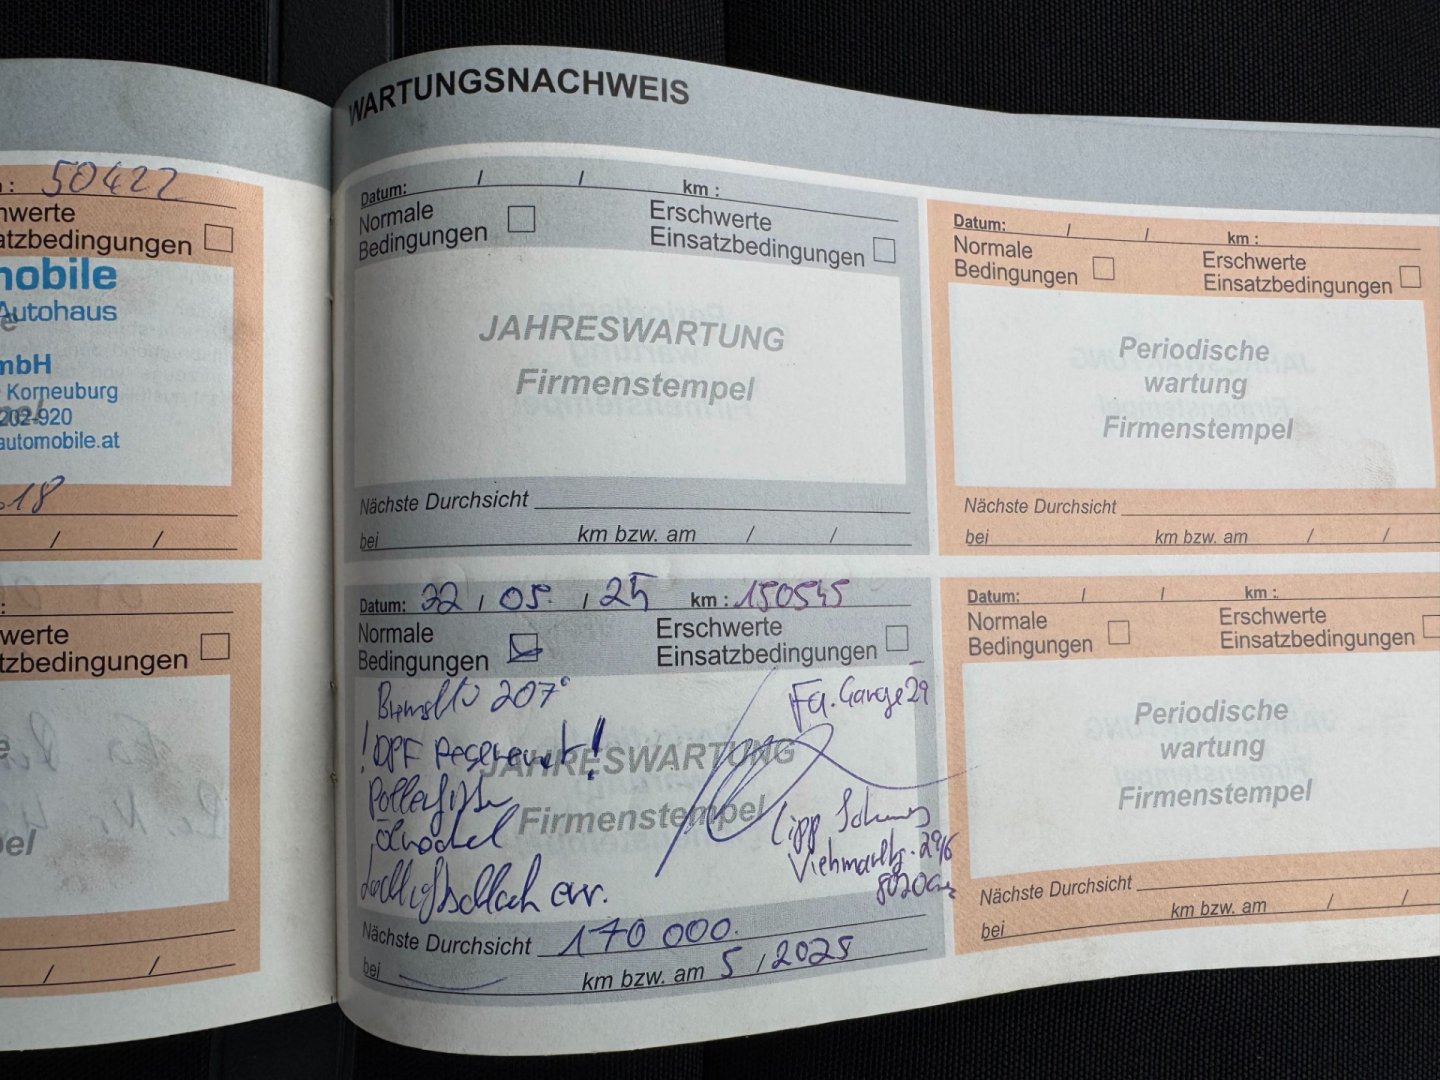 50422
werte
atzbedingungen
mobile
Autohaus
mbH
Korneuburg
202-920
automobile.at
18
/ /
werte
tzbedingungen
/ /
WARTUNGSNACHWEIS
Datum: / / km :
Normale
Bedingungen
Erschwerte
Einsatzbedingungen
JAHRESWARTUNG
Firmenstempel
Nächste Durchsicht
bei km bzw. am / /
Datum: / / km :
Normale
Bedingungen
Erschwerte
Einsatzbedingungen
Periodische
wartung
Firmenstempel
Nächste Durchsicht
bei km bzw. am / /
Datum: 22 / 05. / 25 km : 150545
Normale
Bedingungen
Erschwerte
Einsatzbedingungen
207°
Fa. Garage 29
! DPF !
JAHRESWARTUNG
Firmenstempel
Lipp
Viehmarktg. 29/6
8020
Nächste Durchsicht 170 000.
bei km bzw. am 5 / 2025
Datum: / / km :
Normale
Bedingungen
Erschwerte
Einsatzbedingungen
Periodische
wartung
Firmenstempel
Nächste Durchsicht
bei km bzw. am / /